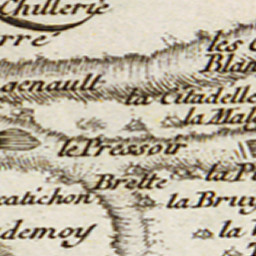 Chillerie
rré
les C
Blan
genault
la Citadelle
la Mal
le Pressoir
la Pi
Brette
catichon
la Bruy
demoy
la